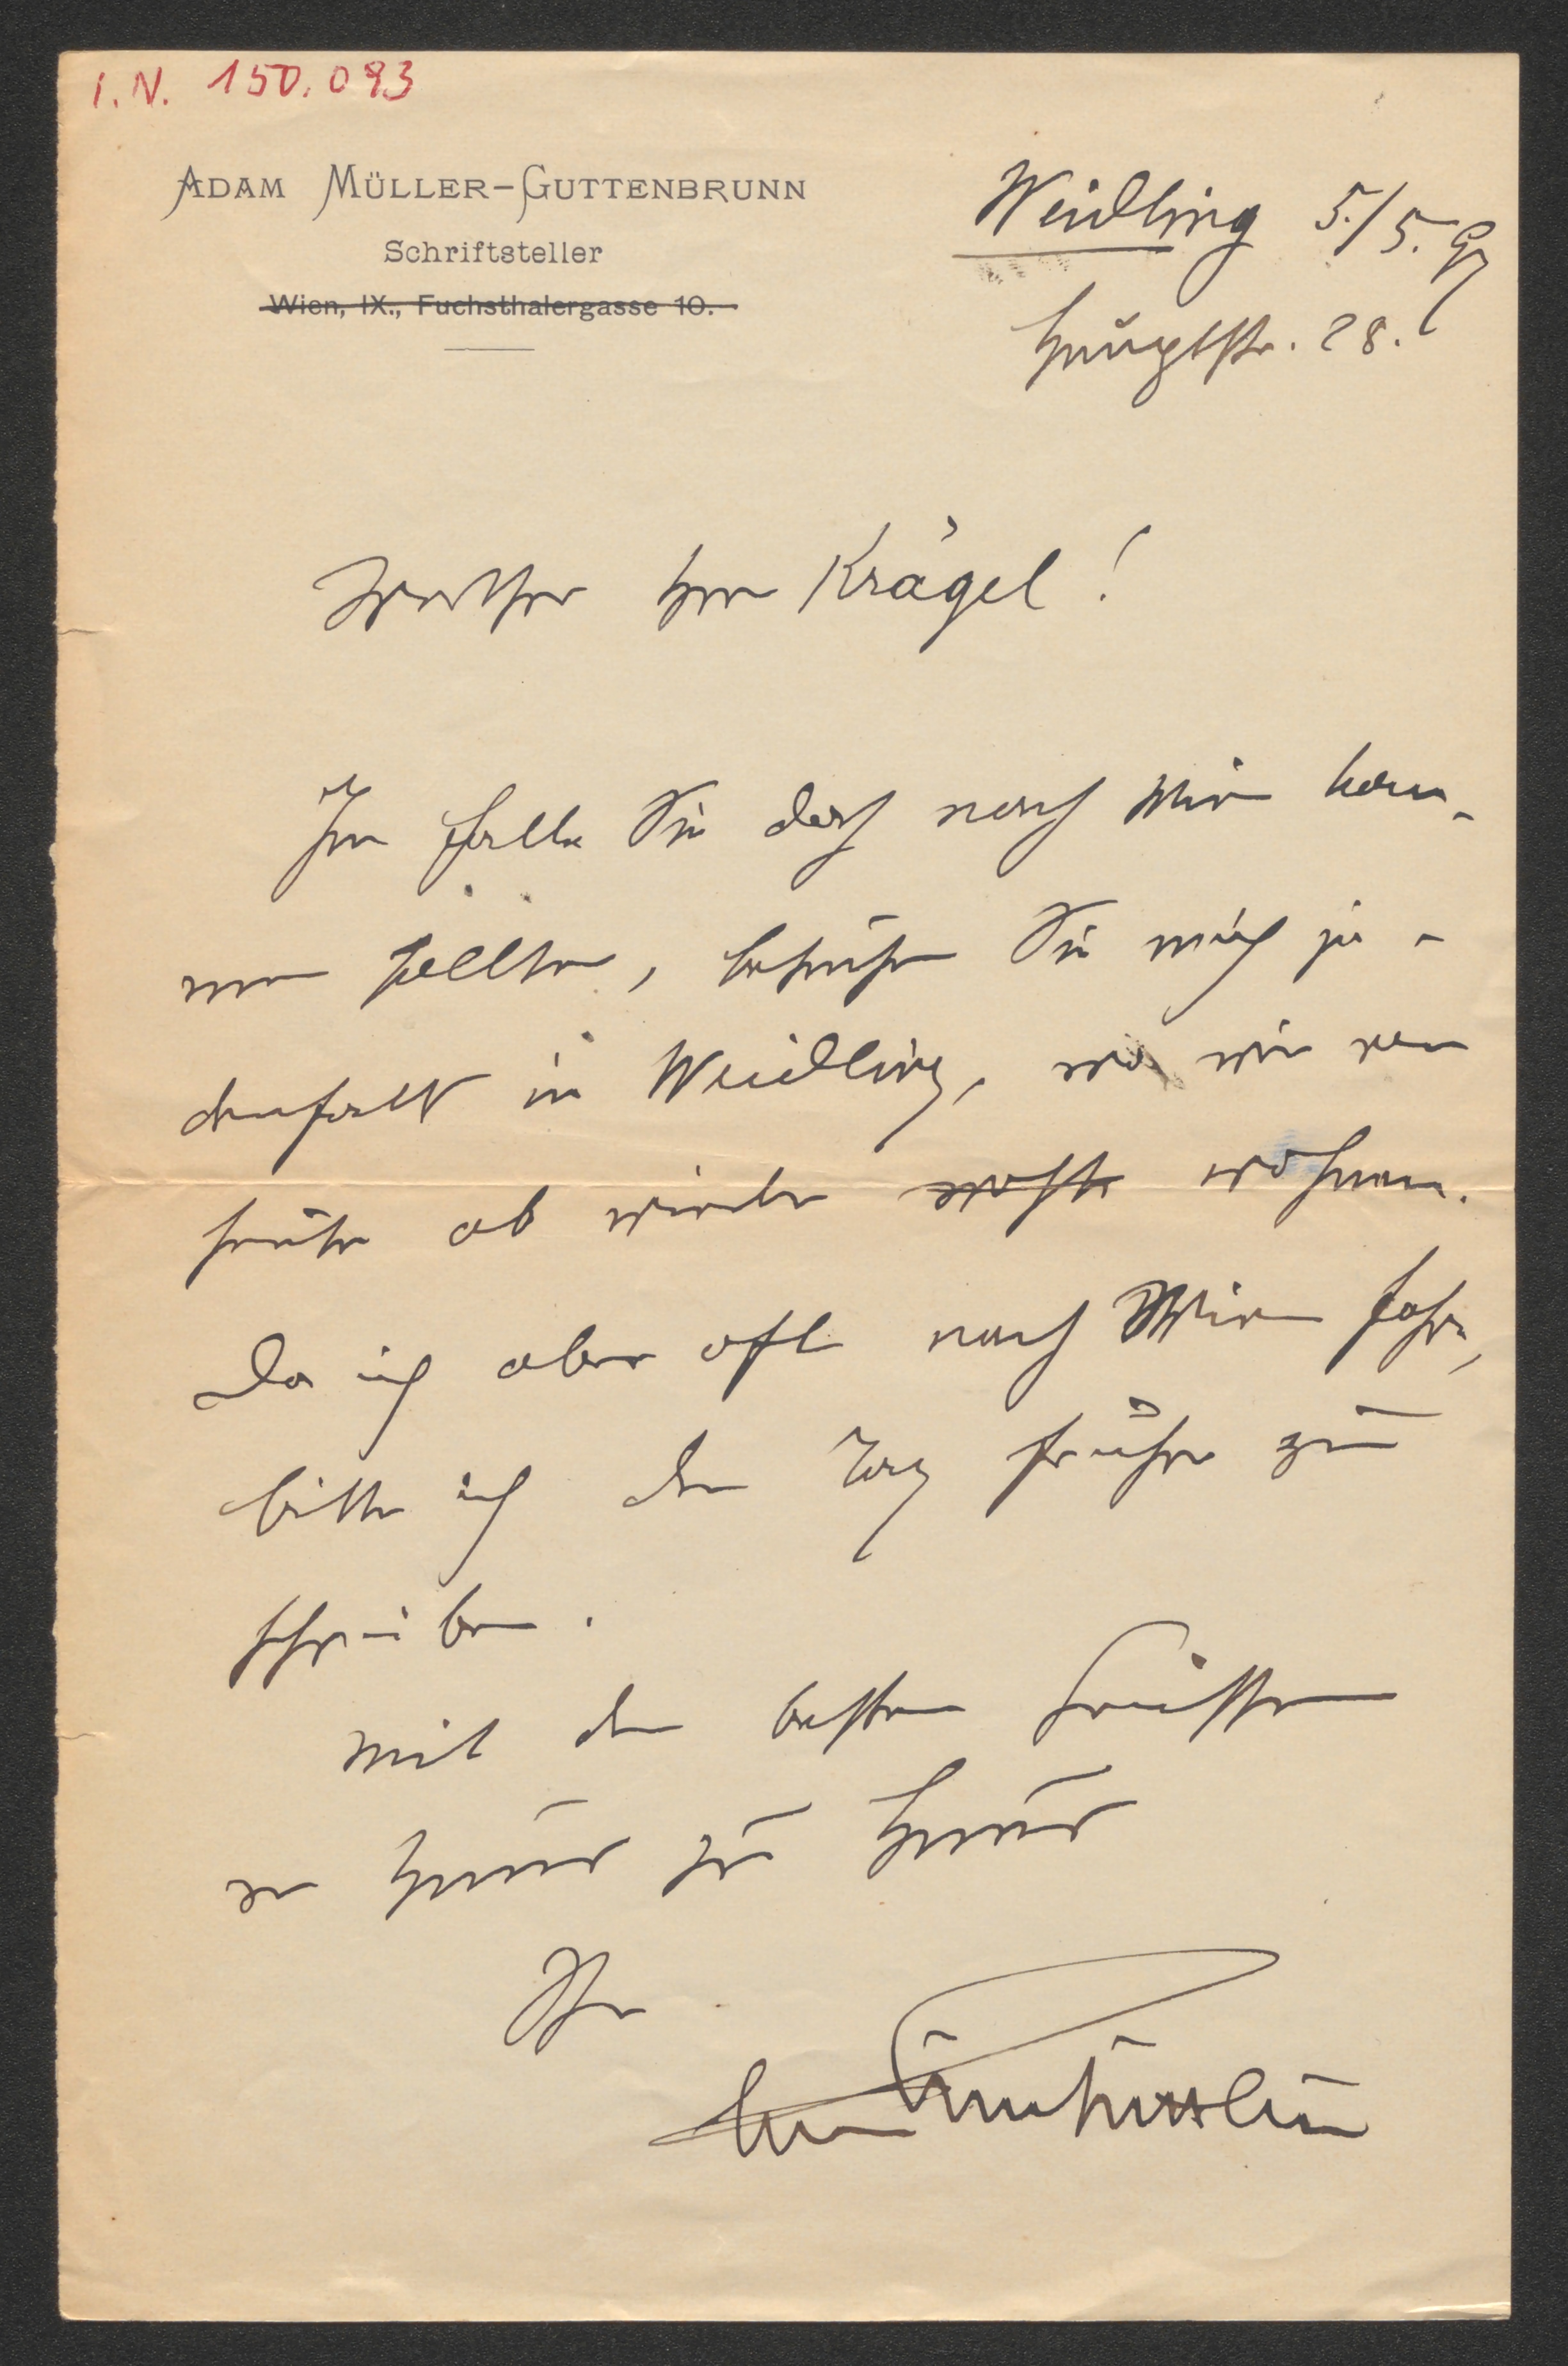 I.N. 150.093
ADAM MÜLLER-GUTTENBRUNN
Schriftsteller
Wien, IX., Fuchsthalergasse 10.
Weidling 5./5. 97
Hauptstr. 28.
Werther Herr Krägel!
Im Falle Sie doch nach Wien kom-
men sollten, besuchen Sie mich je-
denfalls in Weidling, wo wir von
heute ab wieder wohnen.
Da ich aber oft nach Wien fahre,
bitte ich den Tag früher zu
schreiben.
Mit den besten Grüssen
von Haus zu Haus
Ihr
Müller-Guttenbrunn